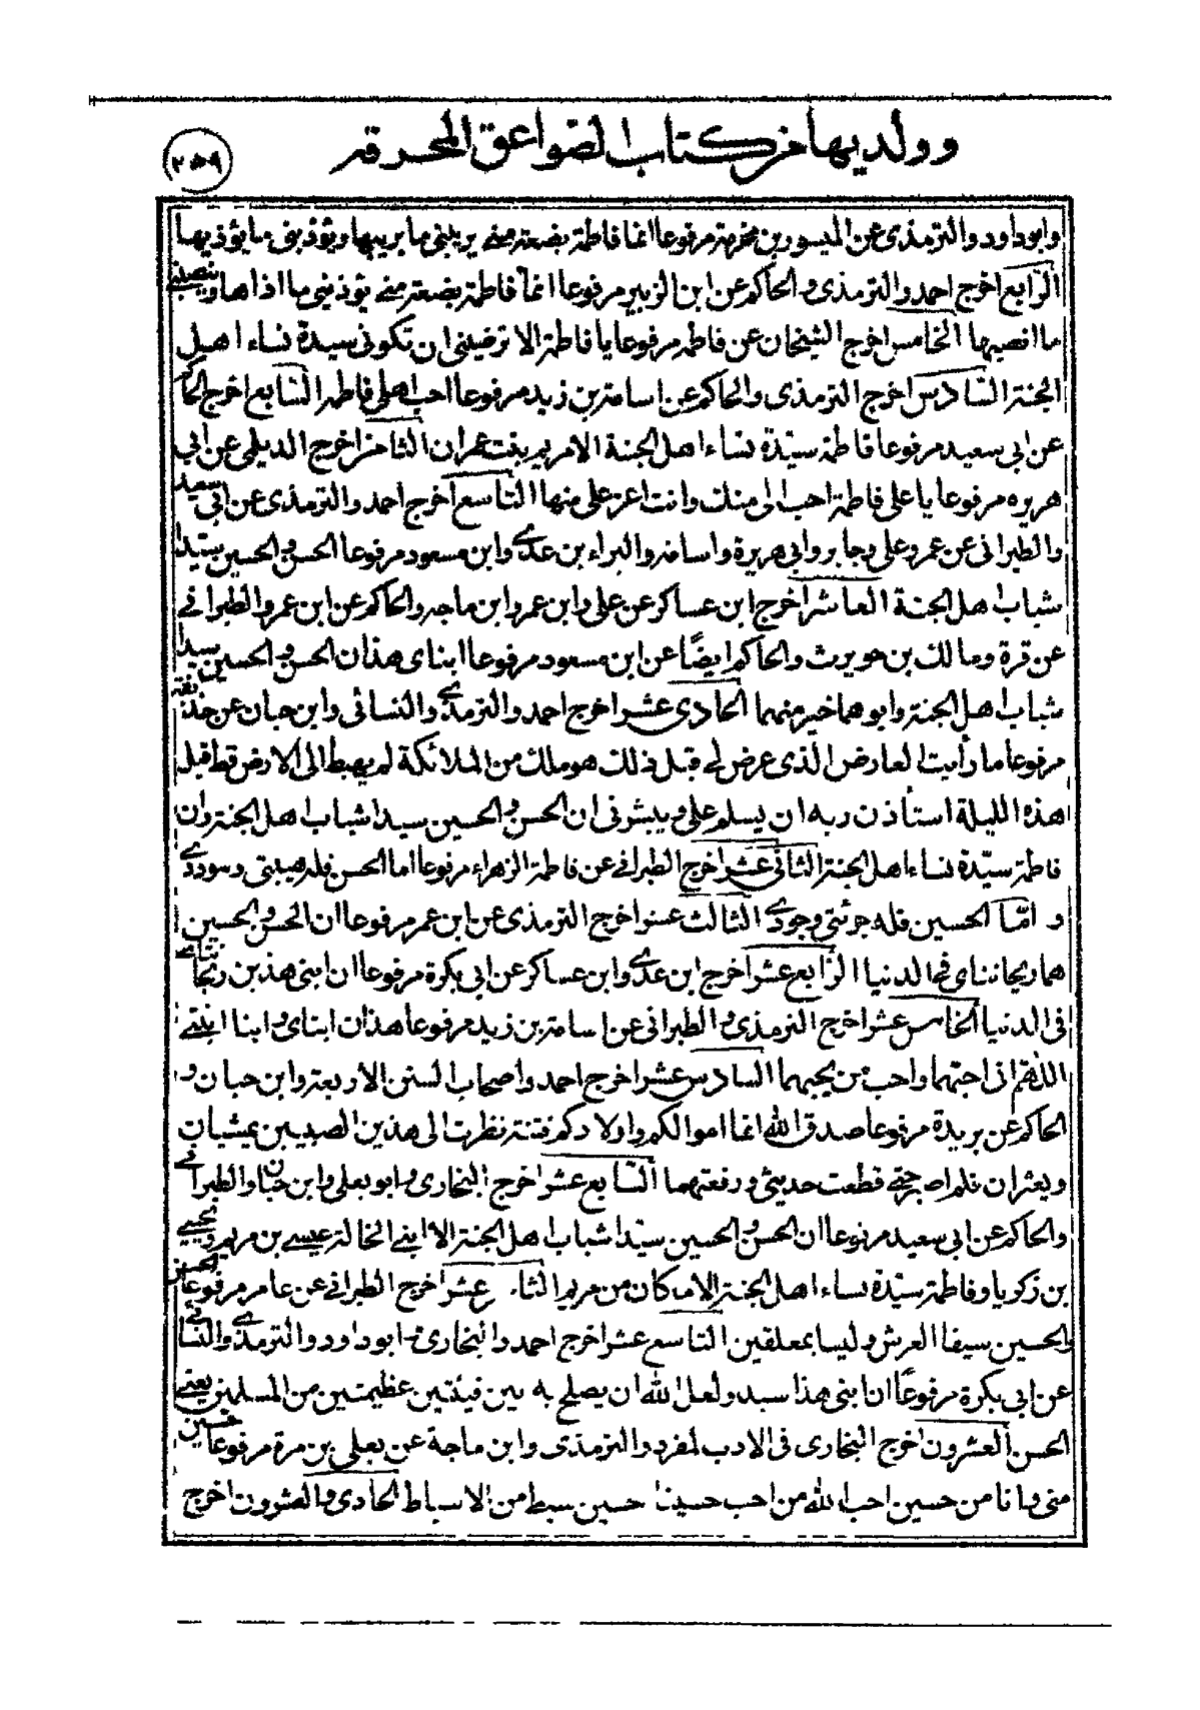 وولديها من كتاب الصواعق المحرقة
٢٥٩
وابوداود والترمذى عن المسور بن مخرمة مرفوعا انما فاطمة بضعة منى يريبنى ما يريبها ويؤذينى ما يؤذيها
الرابع اخرج احمد والترمذى والحاكم عن ابن الزبير مرفوعا انما فاطمة بضعة منى يؤذينى ما اذاها وينصبنى
ما انصبها الخامس اخرج الشيخان عن فاطمة مرفوعا يا فاطمة الا ترضينى ان تكونى سيدة نساء اهل
الجنة السادس اخرج الترمذى والحاكم عن اسامة بن زيد مرفوعا احب اهلى فاطمة السابع اخرج الحاكم
عن ابى سعيد مرفوعا فاطمة سيّدة نساء اهل الجنة الا مريم بنت عمران الثامن اخرج الديلمى عن ابى
هريره مرفوعا يا على فاطمة احب الى منك وانت اعز على منها التاسع اخرج احمد والترمذى عن ابى سعيد
والطبرانى عن عمر وعلى وجابر وابى هريرة واسامة والبراء بن عدى وابن مسعود مرفوعا الحسن والحسين سيّدا
شباب اهل الجنة العاشر اخرج ابن عساكر عن على وابن عمر وابن ماجه والحاكم عن ابن عمر والطبرانى
عن قرة ومالك بن حويرث والحاكم ايضًا عن ابن مسعود مرفوعا ابناى هذان الحسن والحسين سيدا
شباب اهل الجنة وابوهما خير منهما الحادى عشر اخرج احمد والترمذى والنسائى وابن حبان عن حذيفة
مرفوعا ما رأيت العارض الذى عرض لى قبل ذلك هو ملك من الملائكة لم يهبط الى الارض قط قبل
هذه الليلة استأذن ربه ان يسلم على ويبشرنى ان الحسن والحسين سيدا شباب اهل الجنة وان
فاطمة سيّدة نساء اهل الجنة الثانى عشر اخرج الطبرانى عن فاطمة الزهراء مرفوعا اما الحسن فله هيبتى وسوددى
و امّا الحسين فله جرئتى وجودى الثالث عشر اخرج الترمذى عن ابن عمر مرفوعا ان الحسن والحسين
هما ريحانتاى فى الدنيا الرابع عشر اخرج ابن عدى وابن عساكر عن ابى بكرة مرفوعا ان ابنى هذين ريحانتاى
فى الدنيا الخامس عشر اخرج الترمذى والطبرانى عن اسامة بن زيد مرفوعا هذان ابناى وابنا ابنتى
اللهم انى احبهما واحب من يحبهما السادس عشر اخرج احمد واصحاب السنن الاربعة وابن حبان و
الحاكم عن بريدة مرفوعا صدق الله انما اموالكم واولادكم فتنة نظرت الى هذين الصبيين يمشيان
ويعثران فلم اصبر حتى قطعت حديثى ورفعتهما السابع عشر اخرج البخارى وابو يعلى وابن حبان والطبرانى
والحاكم عن ابى سعيد مرفوعا ان الحسن والحسين سيّدا شباب اهل الجنة الا ابنى الخالة عيسى بن مريم ويحيى
بن زكريا وفاطمة سيّدة نساء اهل الجنة الا ما كان من مريم الثا عشر اخرج الطبرانى عن عامر مرفوعا الحسن
والحسين سيفا العرش وليسا بمعلقين التاسع عشر اخرج احمد والبخارى و ابوداود والترمذى والنسائى
عن ابى بكرة مرفوعًا ان ابنى هذا سيد ولعل الله ان يصلح به بين فيئتين عظيمتين من المسلمين يعنى
الحسن العشرون اخرج البخارى فى الادب المفرد والترمذى وابن ماجة عن يعلى بن مرة مرفوعا حسين
منى وانا من حسين احب الله من احب حسينا حسين سبط من الاسباط الحادى والعشرون اخرج